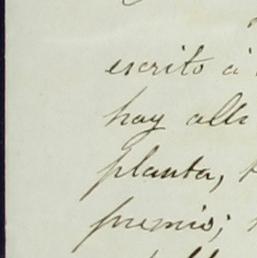 escrito á
hay alla
planta,
premio;